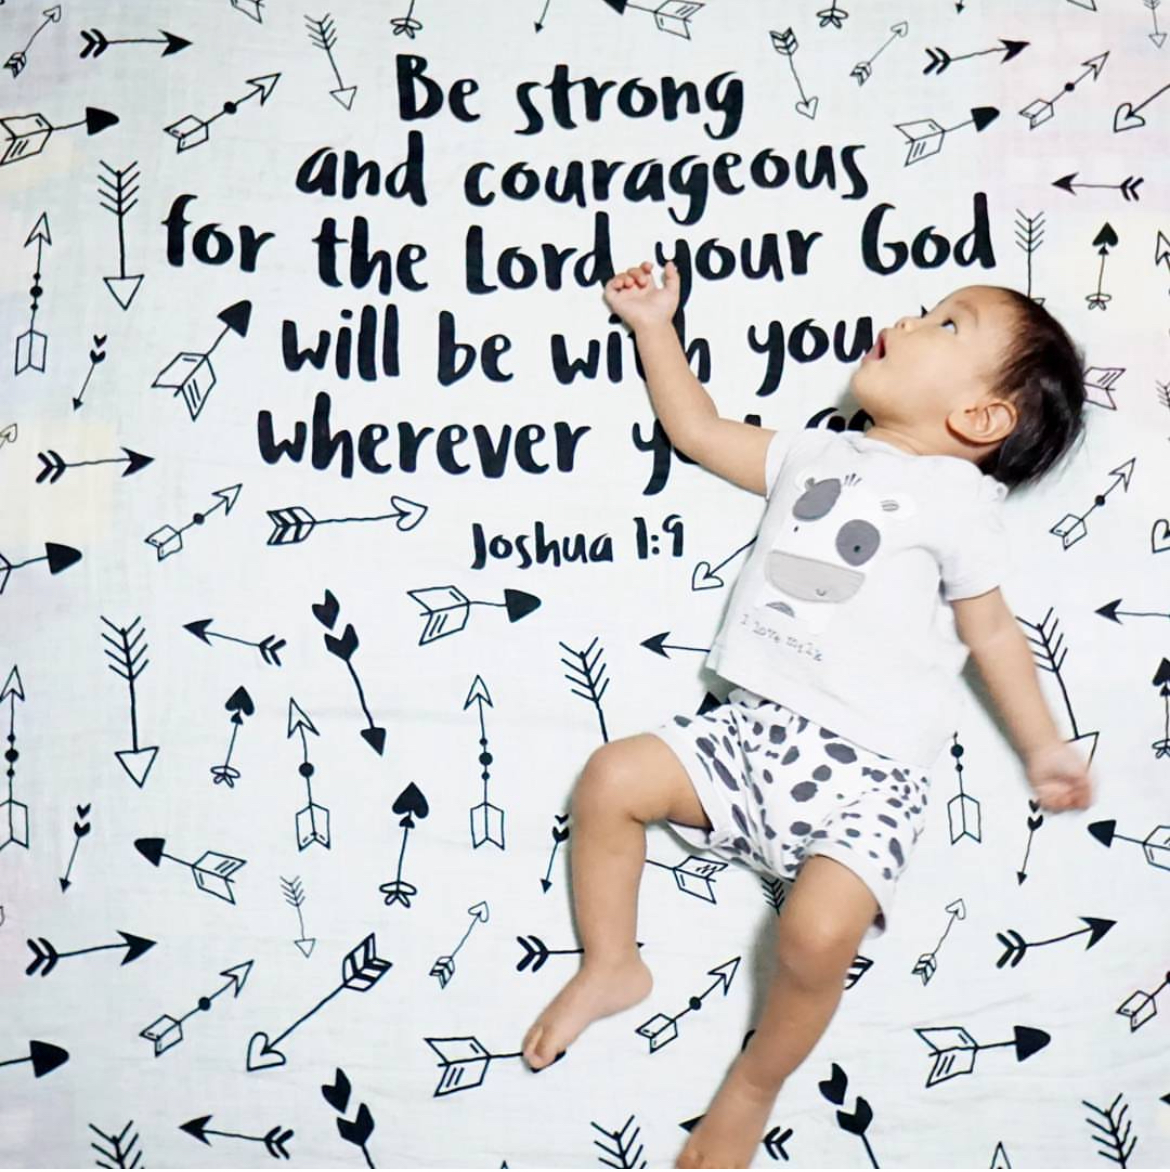 Be strong
and courageous
for the Lord your God
will be with you
wherever you go
Joshua 1:9
I love milk